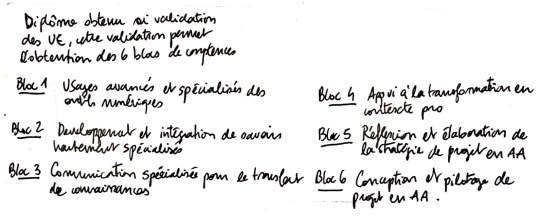 Diplôme obtenu si validation
des UE, cette validation permet
l'obtention des 6 blocs de compétences
Bloc 1 Usages avancés et spécialisés des
outils numériques
Bloc 2 Developpement et intégration de savoirs
hautement spécialisés
Bloc 3 Communication spécialisée pour le transfert
de connaissances
Bloc 4 Appui à la transformation en
contexte pro
Bloc 5 Réflexion et élaboration de
la stratégie de projet en AA
Bloc 6 Conception et pilotage de
projet en AA.